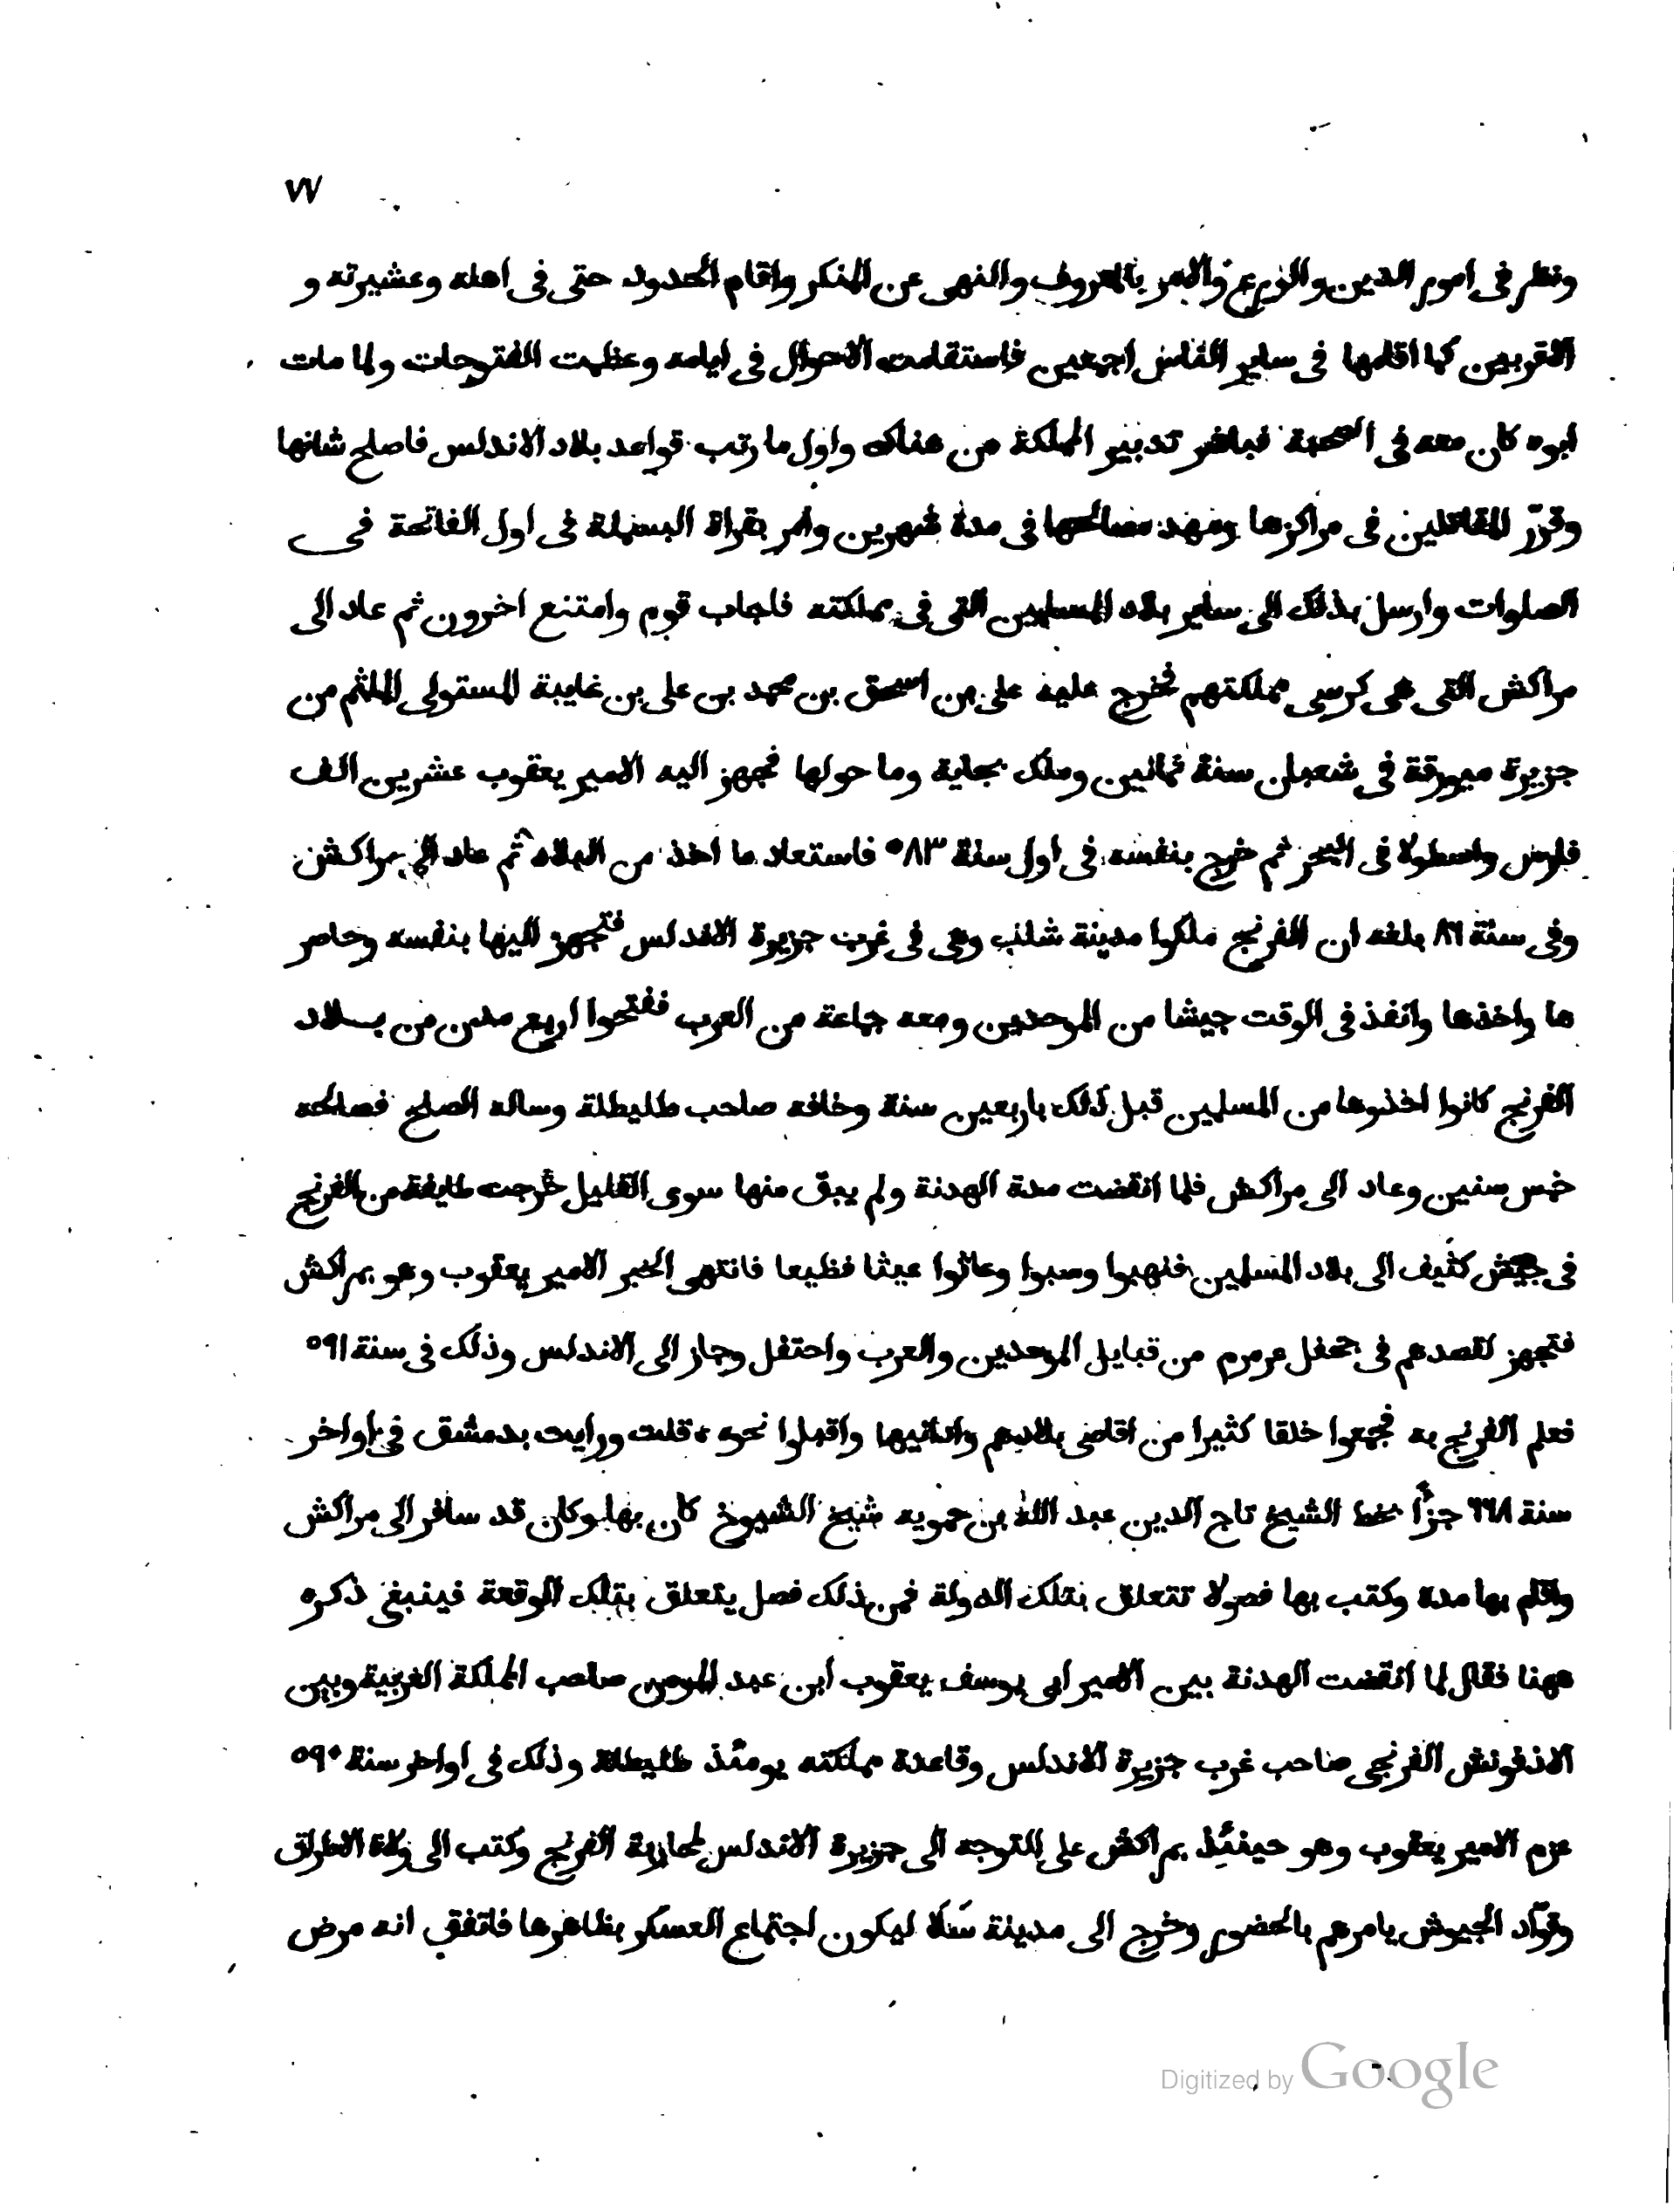 ٧٧
ونظر فى امور الدين والورع والامر بالمعروف والنهى عن المنكر واقام الحدود حتى فى اهله وعشيرته و
الاقربين كما اقامها فى ساير الناس اجمعين فاستقامت الاحوال فى ايامه وعظمت الفتوحات ولما مات
ابوه كان معه فى الصحبة فباشر تدبير المملكة من هناك واول ما رتب قواعد بلاد الاندلس فاصلح شانها
وقرّر المقاتلين فى مراكزها ومهد مصالحها فى مدة شهرين وامر بقراة البسملة فى اول الفاتحة فى
الصلوات وارسل بذلك الى ساير بلاد المسلمين التى فى مملكته فاجاب قوم وامتنع اخرون ثم عاد الى
مراكش التى هى كرسى مملكتهم فخرج عليه على بن اسحق بن محمد بن على بن غايبة المستولى الملثم من
جزيرة ميورقة فى شعبان سنة ثمانين وملك بجاية وما حولها فجهز اليه الامير يعقوب عشرين الف
فارس واسطولا فى البحر ثم خرج بنفسه فى اول سنة ٥٨٣ فاستعاد ما اخذ من البلاد ثم عاد الى مراكش
وفى سنة ٨٦ بلغه ان الفرنج ملكوا مدينة شلب وهى فى غرب جزيرة الاندلس فتجهز اليها بنفسه وحاصر
ها واخذها وانفذ فى الوقت جيشا من الموحدين ومعه جماعة من العرب ففتحوا اربع مدن من بلاد
الفرنج كانوا اخذوها من المسلمين قبل ذلك باربعين سنة وخافه صاحب طليطلة وساله الصلح فصالحه
خمس سنين وعاد الى مراكش فلما انقضت مدة الهدنة ولم يبق منها سوى القليل خرجت طايفة من الفرنج
فى جيش كثيف الى بلاد المسلمين فنهبوا وسبوا وعاثوا عيثا فظيعا فانتهى الخبر الامير يعقوب وهو بمراكش
فتجهز لقصدهم فى جحفل عرمرم من قبايل الموحدين والعرب واحتفل وجاز الى الاندلس وذلك فى سنة ٥٩١
فعلم الفرنج به فجمعوا خلقا كثيرا من اقاصى بلادهم وادانيها واقبلوا نحوه ، قلت ورايت بدمشق فى اواخر
سنة ٦٦٨ جزًا بخط الشيخ تاج الدين عبد الله بن حمويه شيخ الشيوخ كان بها وكان قد سافر الى مراكش
واقام بها مدة وكتب بها فصولا تتعلق بتلك الدولة فمن ذلك فصل يتعلق بتلك الوقعة فينبغى ذكره
ههنا فقال لما انقضت الهدنة بين الامير ابى يوسف يعقوب ابن عبد المومن صاحب المملكة الغربية وبين
الاذفونش الفرنجى صاحب غرب جزيرة الاندلس وقاعدة مملكته يومئذ طليطلة وذلك فى اواخر سنة ٥٩٠
عزم الامير يعقوب وهو حينئذ بمراكش على التوجه الى جزيرة الاندلس لمحاربة الفرنج وكتب الى ولاة الاطراف
وقوّاد الجيوش يامرهم بالحضور وخرج الى مدينة سَلَا ليكون اجتماع العسكر بظاهرها فاتفق انه مرض
Digitized by Google